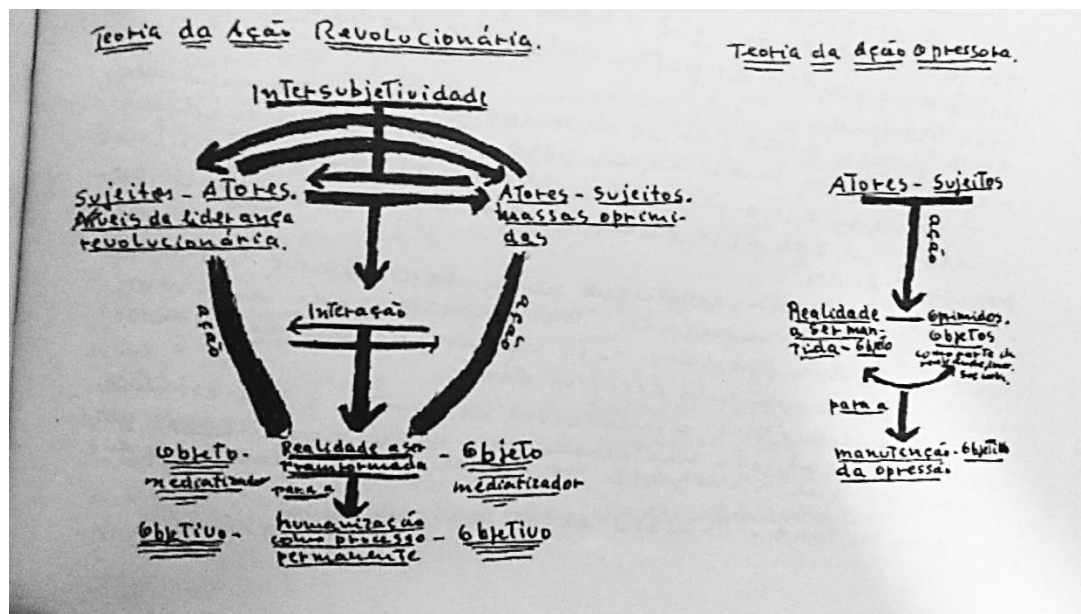 Teoria da Ação Revolucionária.
Intersubjetividade
Sujeitos - Atores.
de liderança
revolucionária.
Atores - Sujeitos.
massas oprimi-
das
ação
ação
Interação
Objeto-
mediatizador
Realidade a ser
Transformada
para a
- Objeto
mediatizador
Objetivo-
humanização
como processo
permanente
- Objetivo
Teoria da Ação Opressora.
Atores - Sujeitos
ação
Realidade
a ser man-
tida - Objeto
Oprimidos.
Objetos
como parte da
para a
manutenção - Objetivo
da opressão